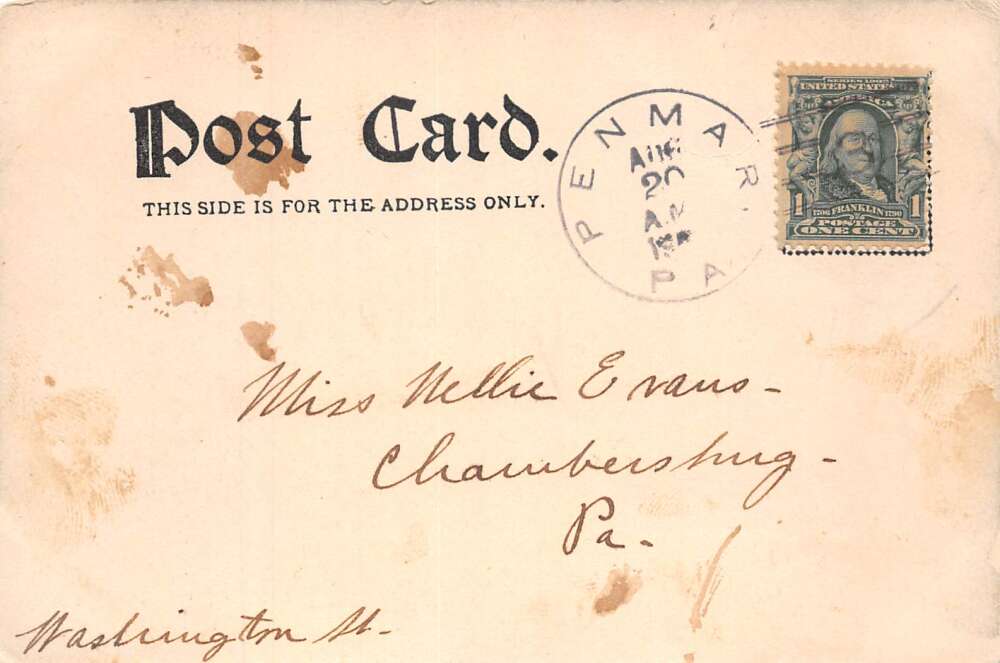 Post Card.
THIS SIDE IS FOR THE ADDRESS ONLY.
PENMAR
AUG
20
A.M
PA
SERIES 1902
UNITED STATES OF
AMERICA
1 1706 FRANKLIN 1790 1
POSTAGE
ONE CENT
Miss Nellie Evans-
Chambersburg-
Pa.
Washington St.